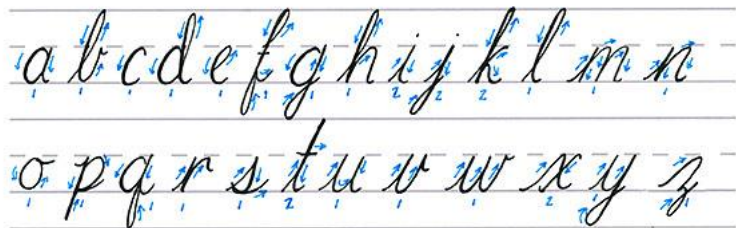 a b c d e f g h i j k l m n
o p q r s t u v w x y z